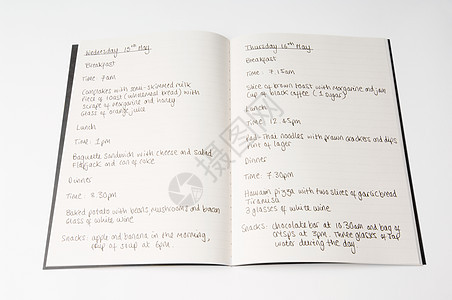 Wednesday 15th May
Breakfast
Time: 7am
Cornflakes with semi-skimmed milk
Piece of toast (wholemeal bread) with
scrape of margarine and honey
Glass of orange juice
Lunch
Time: 1pm
Baguette sandwich with cheese and salad
Flapjack and can of coke
Dinner
Time: 8.30pm
Baked potato with beans, mushrooms and bacon
Glass of white wine
Snacks: apple and banana in the morning,
cup of soup at 6pm.
Thursday 16th May
Breakfast
Time: 7.15am
Slice of brown toast with margarine and jam
Cup of black coffee (1 sugar)
Lunch
Time: 12.45pm
Pad-Thai noodles with prawn crackers and dips
Pint of lager
Dinner
Time: 7.30pm
Hawaiian pizza with two slices of garlic bread
Tiramisu
3 glasses of white wine
Snacks: chocolate bar at 10.30am and bag of
crisps at 3pm. Three glasses of tap
water during the day